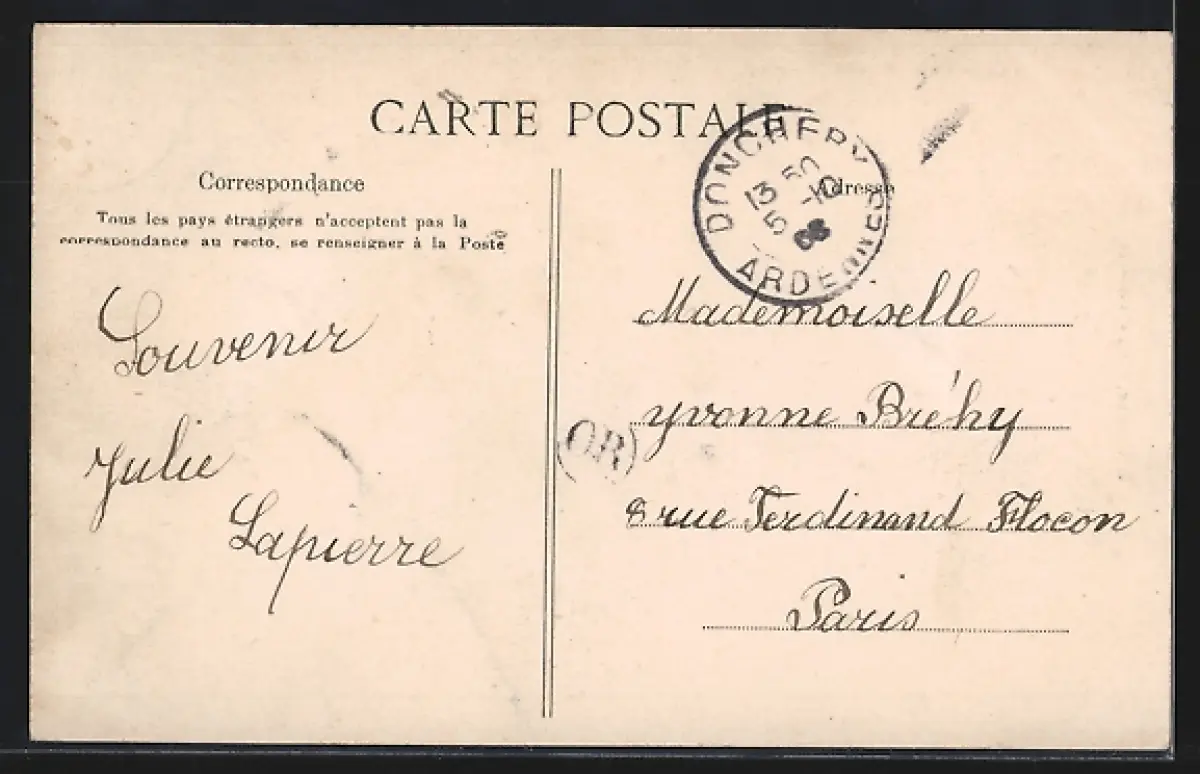 CARTE POSTALE
Correspondance
Tous les pays étrangers n'acceptent pas la
correspondance au recto, se renseigner à la Poste
Souvenir
Julie
Lapierre
DONCHERY
13 50
5 -10
ARDENNES
Adresse
(OR)
Mademoiselle
Yvonne Bréhy
8 rue Ferdinand Flocon
Paris